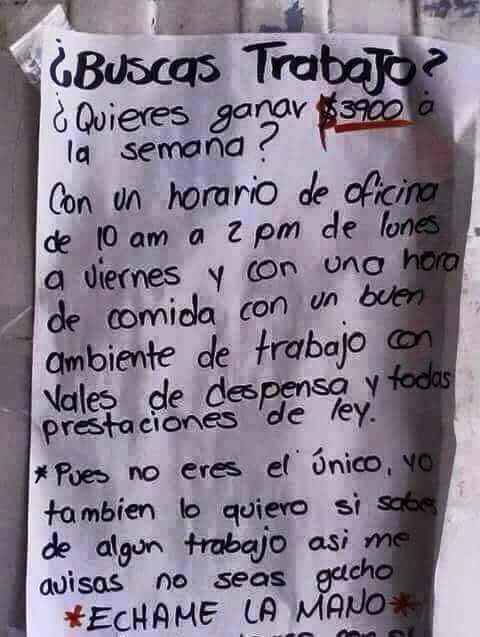 ¿Buscas Trabajo?
¿Quieres ganar $3900 a
la semana?
Con un horario de oficina
de 10 am a 2 pm de lunes
a viernes y con una hora
de comida con un buen
ambiente de trabajo con
vales de despensa y todas
prestaciones de ley.
*Pues no eres el único, yo
tambien lo quiero si sabes
de algun trabajo asi me
avisas no seas gacho
*ECHAME LA MANO*